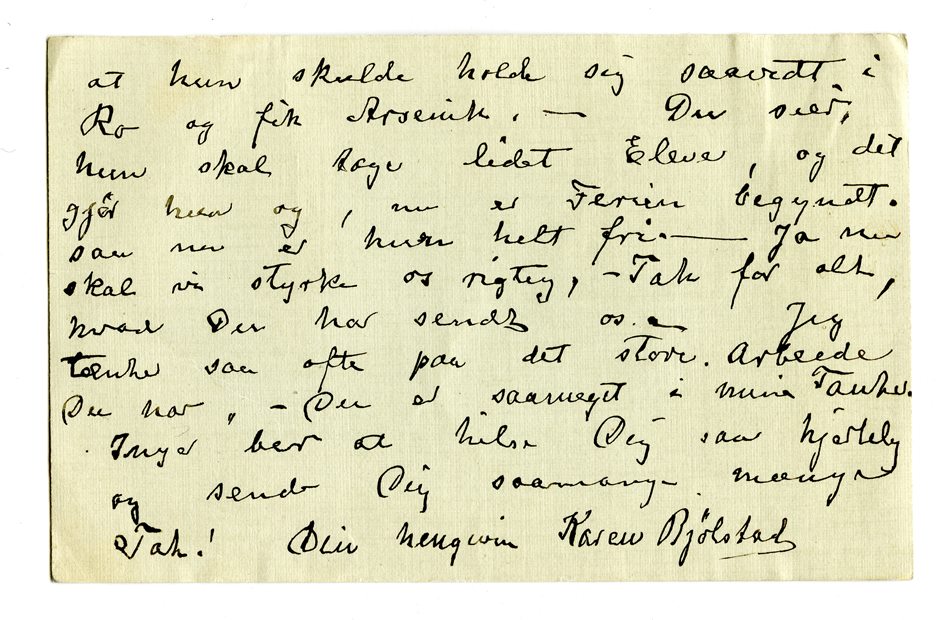 at hun skulde holde sig saavidt i
Ro og fik Arsenik. — Du seer,
hun skal tage lidet Elever, og det
gjør hun og, nu er Ferien begyndt.
saa nu er hun helt fri. — Ja nu
skal vi styrke os rigtig, – Tak for alt,
hvad Du har sendt os. – Jeg
tænker saa ofte paa det store Arbeide
Du har, – Du er saameget i mine Tanker.
Inger ber at hilse Dig saa hjertelig
og sender Dig saamange mange
Tak! Din hengivne Karen Bjølstad